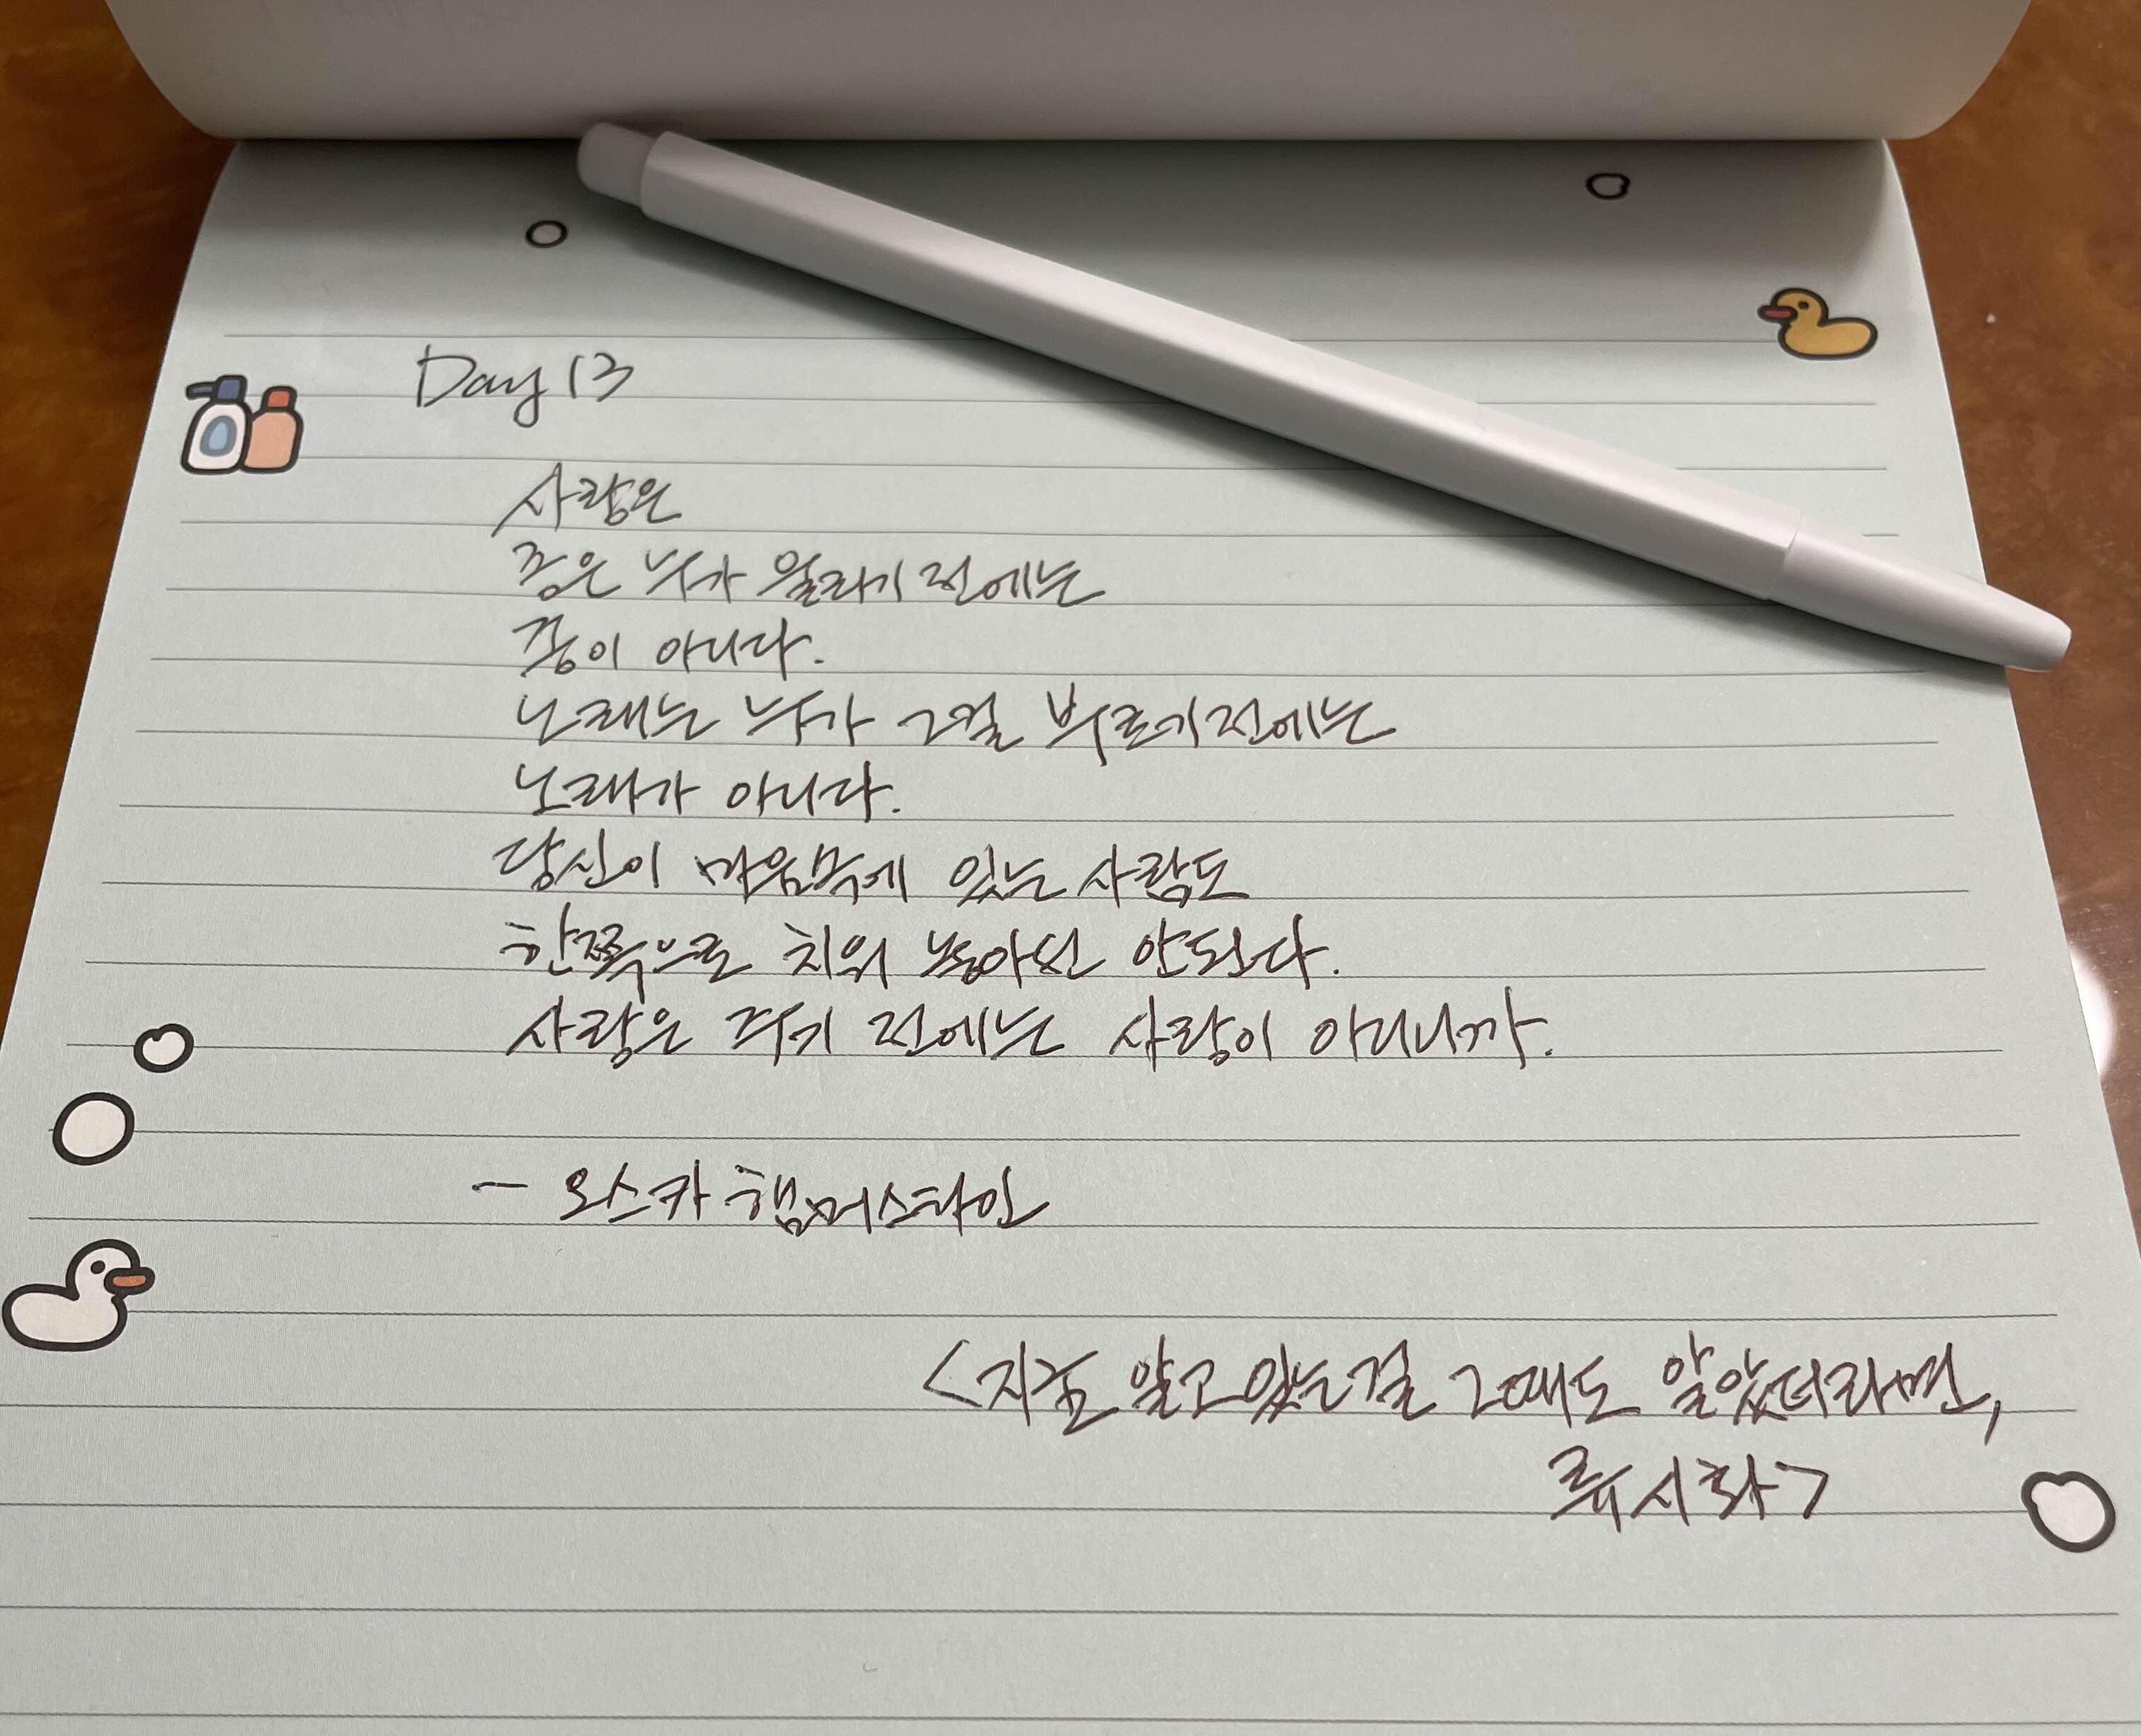 Day 13
사랑은
종은 누가 울리기 전에는
종이 아니다.
노래는 누가 그걸 부르기 전에는
노래가 아니다.
당신이 마음속에 있는 사랑도
한쪽으로 치워 놓아선 안된다.
사랑은 주기 전에는 사랑이 아니니까.
- 오스카 햄머스타인
<지금 알고 있는 걸 그때도 알았더라면,
류시화>